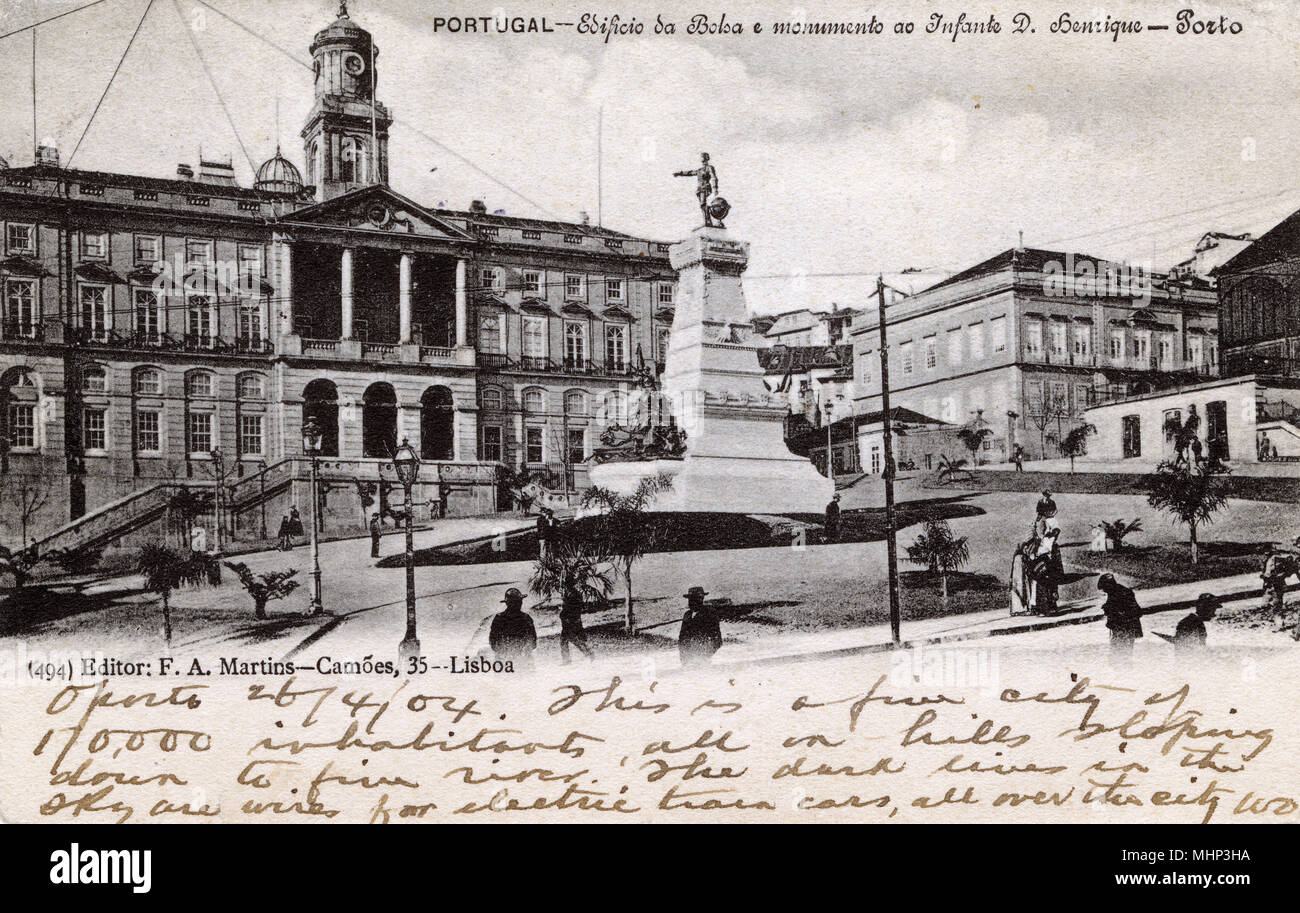 PORTUGAL--Edificio da Bolsa e monumento ao Infante D. Henrique — Porto
(494) Editor: F. A. Martins—Camões, 35--Lisboa
Oporto 26/4/04. This is a fine city of
170,000 inhabitants, all on hills sloping
down to fine river. The dark lines in the
sky are wires for electric tram cars, all over the city
a
alamy
alamy stock photo
Image ID: MHP3HA
www.alamy.com